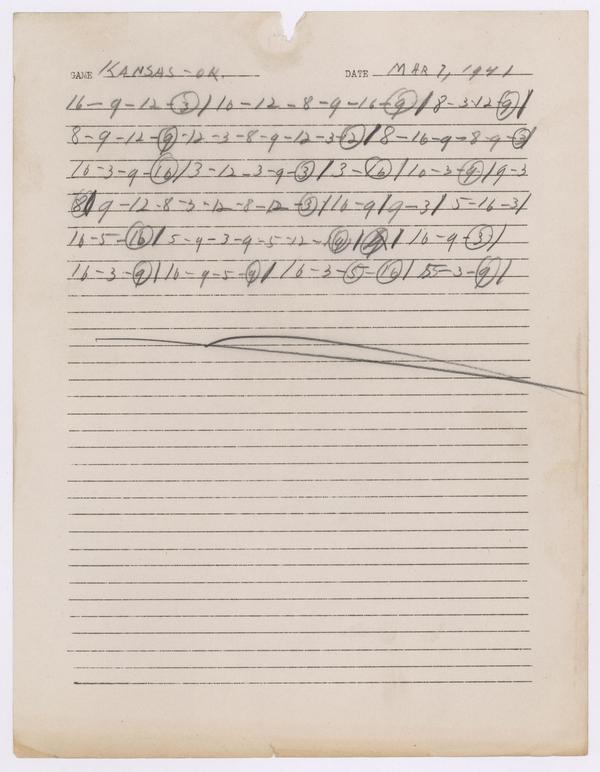 GAME KANSAS-OK. DATE MAR 7, 1941
16-9-12-3/10-12-8-9-16-9/8-3-12-9/
8-9-12-9-12-3-8-9-12-3-12/8-16-9-8-9-3/
10-3-9-16/3-12-3-9-3/3-16/10-3-9/9-3
8/9-12-8-3-12-8-12-3/10-9/9-3/5-16-3/
10-5-16/5-9-3-9-5-12-9/9/10-9-3/
16-3-9/10-9-5-9/10-3-5-16/5-3-9/